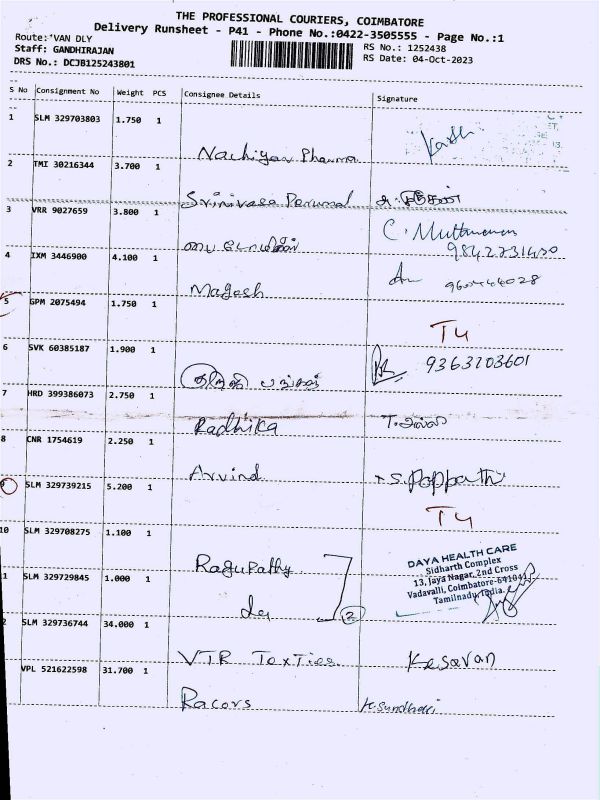 THE PROFESSIONAL COURIERS, COIMBATORE
Delivery Runsheet - P41 - Phone No.:0422-3505555 - Page No.:1
Route: VAN DLY
RS No.: 1252438
Staff: GANDHIRAJAN
RS Date: 04-Oct-2023
DRS No.: DCJB125243801
S No Consignment No Weight PCS Consignee Details Signature
1 SLM 329703803 1.750 1
Nachiyar Pharma
2 TMI 30216344 3.700 1
Srinivasa Perumal
3 VRR 9027659 3.800 1
C. Muttumanan
4 IXM 3446900 4.100 1
Magesh
5 GPM 2075494 1.750 1
T4
6 SVK 60385187 1.900 1
9363203601
7 HRD 399386073 2.750 1
Radhika
8 CNR 1754619 2.250 1
Arvind S. Poppathi
9 SLM 329739215 5.200 1
T4
10 SLM 329708275 1.100 1
Ragupathy
DAYA HEALTH CARE
Sidharth Complex
13, Jaya Nagar, 2nd Cross
Vadavalli, Coimbatore-641041
Tamilnadu, India.
1 SLM 329729845 1.000 1
do 2
2 SLM 329736744 34.000 1
VTR TexTies Kesavan
VPL 521622598 31.700 1
Racors K. Sundhari